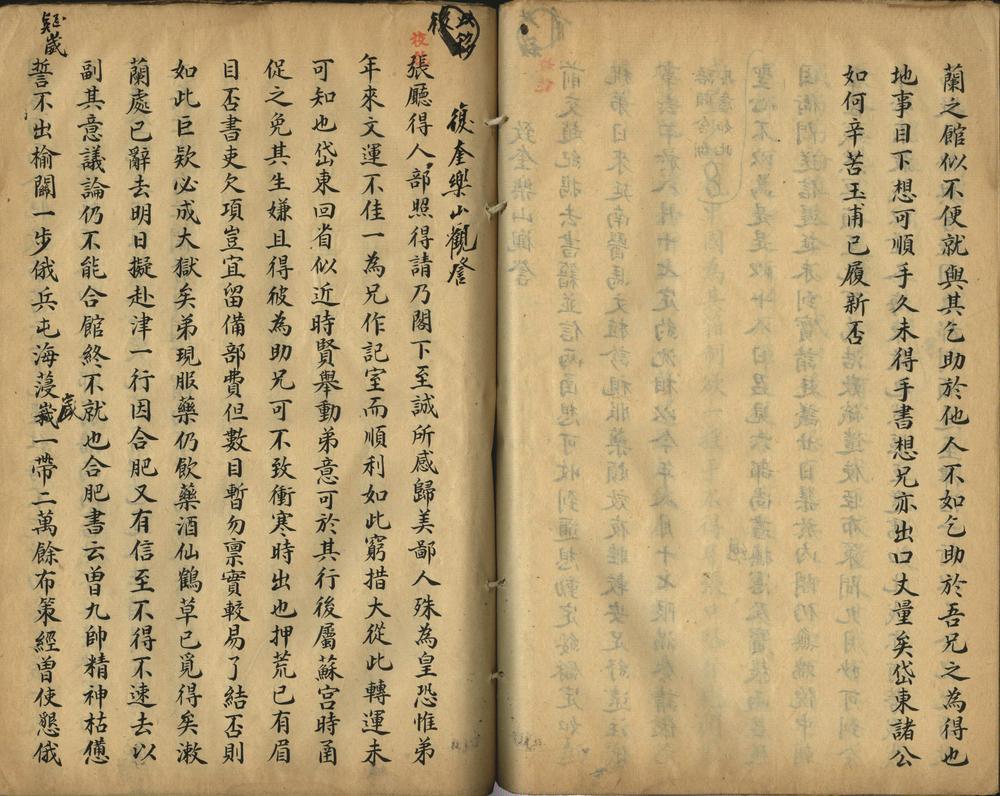 蘭之館似不便就與其乞助於他人不如乞助於吾兄之為得也
地事目下想可順手久未得手書想兄亦出口丈量矣岱東諸公
如何辛苦玉甫已履新否
復
復奎樂山觀詧
張聽得人部照得請乃閣下至誠所感歸美鄙人殊為皇恐惟弟
年來文運不佳一為兄作記室而順利如此窮措大從此轉運未
可知也岱東回省似近時賢舉動弟意可於其行後屬蘇宮時函
促之免其生嫌且得彼為助兄可不致衝寒時出也押荒已有眉
目否書吏欠項豈宜留備部費但數目暫勿稟實較易了結否則
如此巨欵必成大獄矣弟現服藥仍飲藥酒仙鶴草已覓得矣漱
蘭處已辭去明日擬赴津一行因合肥又有信至不得不速去以
副其意議論仍不能合館終不就也合肥書云曾九帥精神枯憊
誓不出榆關一步俄兵屯海蓡崴一帶二萬餘布策經曾使懇俄
崴
疑崴